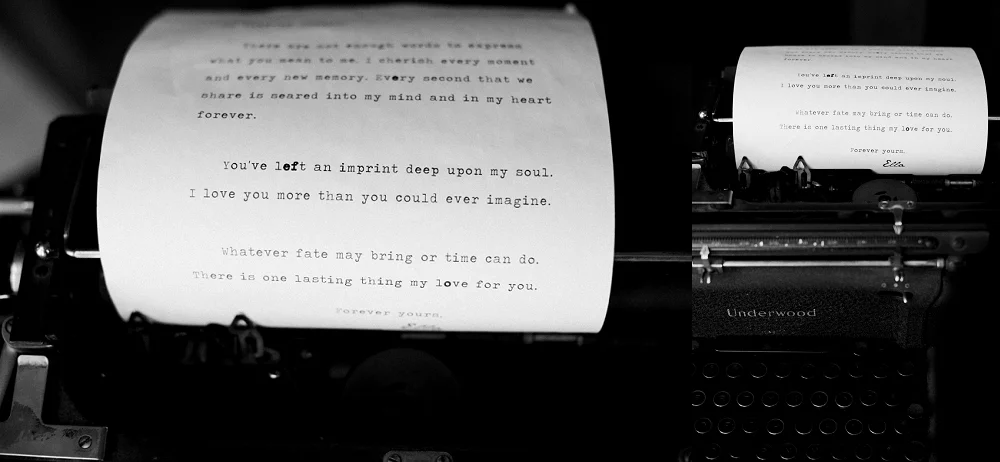 There are not enough words to express
what you mean to me. I cherish every moment
and every new memory. Every second that we
share is seared into my mind and in my heart
forever.
You've left an imprint deep upon my soul.
I love you more than you could ever imagine.
Whatever fate may bring or time can do.
There is one lasting thing my love for you.
Forever yours.
forever.
You've left an imprint deep upon my soul.
I love you more than you could ever imagine.
Whatever fate may bring or time can do.
There is one lasting thing my love for you.
Forever yours.
Ella
Underwood